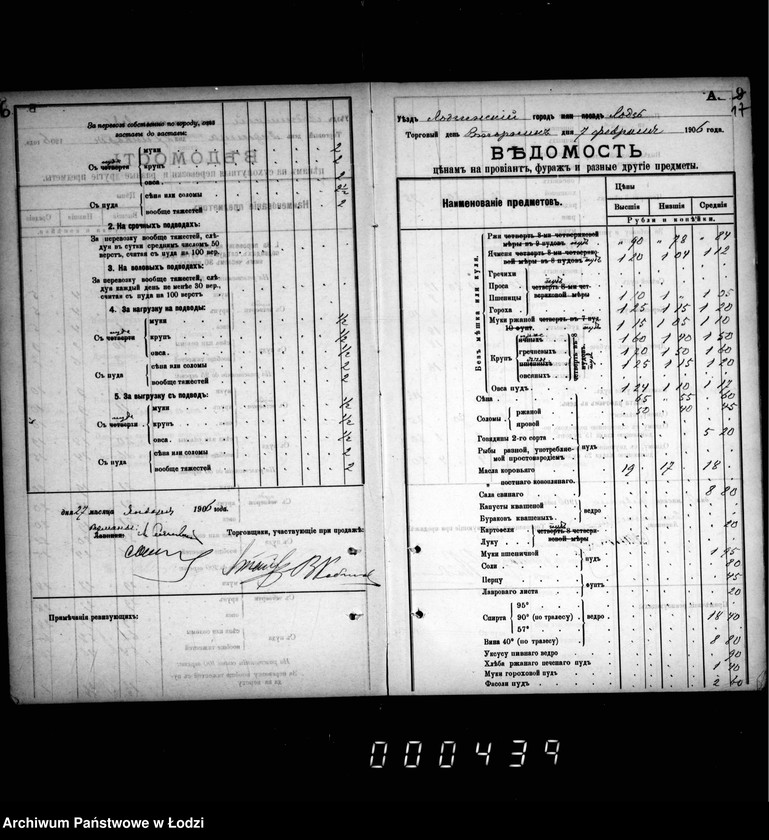 За перевозку собственно по городу, отъ
заставы до заставы:
муки
Съ четверти
крупъ
овса
сѣна или соломы
Съ пуда
вообще тяжестей
2. На срочныхъ подводахъ:
За перевозку вообще тяжестей, слѣ-
дуя въ сутки среднимъ числомъ 50
верстъ, считая съ пуда на 100 вер.
3. На воловыхъ подводахъ:
За перевозку вообще тяжестей, слѣ-
дуя каждый день не менѣе 30 вер.
считая съ пуда на 100 верстъ
4. За нагрузку на подводы:
муки
Съ четверти
крупъ
овса
сѣна или соломы
Съ пуда
вообще тяжестей
5. За выгрузку съ подводъ:
муки
Съ четверти
крупъ
овса
сѣна или соломы
Съ пуда
вообще тяжестей
дня 27 мѣсяца Января 1906 года.
Торговщики, участвующіе при продажѣ:
Примѣчанія ревизующихъ:
А.
17
Уѣздъ Лодзинскій городъ или посадъ Лодзь
Торговый день Вторникъ дня 7 февраля 1906 года.
ВѢДОМОСТЬ
цѣнамъ на провіантъ, фуражъ и разные другіе предметы.
Наименованіе предметовъ.
Цѣны
Высшія Низшія Среднія
Рубли и копѣйки.
Безъ мѣшка или куля.
Ржи четверть 8-ми четвериковой
мѣры въ 9 пудовъ пудъ " 90 " 78 " 84
Ячменя четверть 8-ми четверико-
вой мѣры въ 8 пудовъ пудъ 1 20 1 04 1 12
Гречихи
Проса
четверть 8-ми чет-
вериковой мѣры
Пшеницы 1 10 1 " 1 05
Гороха 1 25 1 15 1 20
Муки ржаной четверть въ 7 пуд.
10 фунт. пудъ 1 15 1 05 1 10
ячныхъ 1 60 1 40 1 50
Крупъ
гречневыхъ 1 70 1 50 1 60
пшенныхъ 1 25 1 15 1 20
овсяныхъ
четверть въ 8
пудовъ
Овса пудъ 1 24 1 10 1 17
Сѣна 65 55 60
ржаной 50 40 45
Соломы
яровой
Говядины 2-го сорта 5 20
Рыбы разной, употребляе-
мой простонародіемъ
пудъ
Масла коровьяго 19 17 18
" постнаго коноплянаго
Сала свинаго 8 80
Капусты квашеной
ведро
Бураковъ квашеныхъ
Картофеля 20
четверть 8 четвери-
ковой мѣры
Луку
Муки пшеничной 1 95
пудъ
Соли 80
Перцу 45
фунтъ
Лавроваго листа 20
95°
Спирта 90° (по тралесу) ведро 18 40
57°
Вина 40° (по тралесу) 8 80
Уксусу пивнаго ведро 90
Хлѣба ржанаго печенаго пудъ 1 40
Муки гороховой пудъ
Фасоли пудъ 2 60
000439
Archiwum Państwowe w Łodzi